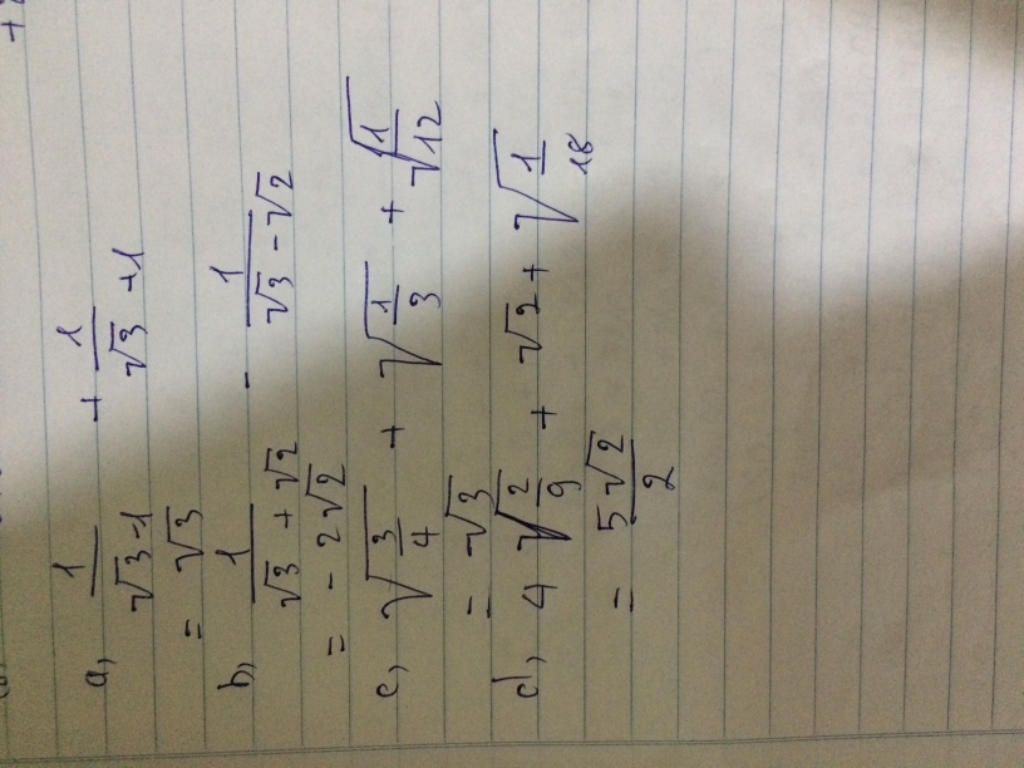 a, 1/(√3-1) + 1/(√3+1)
= √3
b, 1/(√3+√2) - 1/(√3-√2)
= -2√2
c, √(3/4) + √(1/3) + √(1/12)
= √3
d, 4√(2/9) + √2 + √(1/18)
= 5√2/2